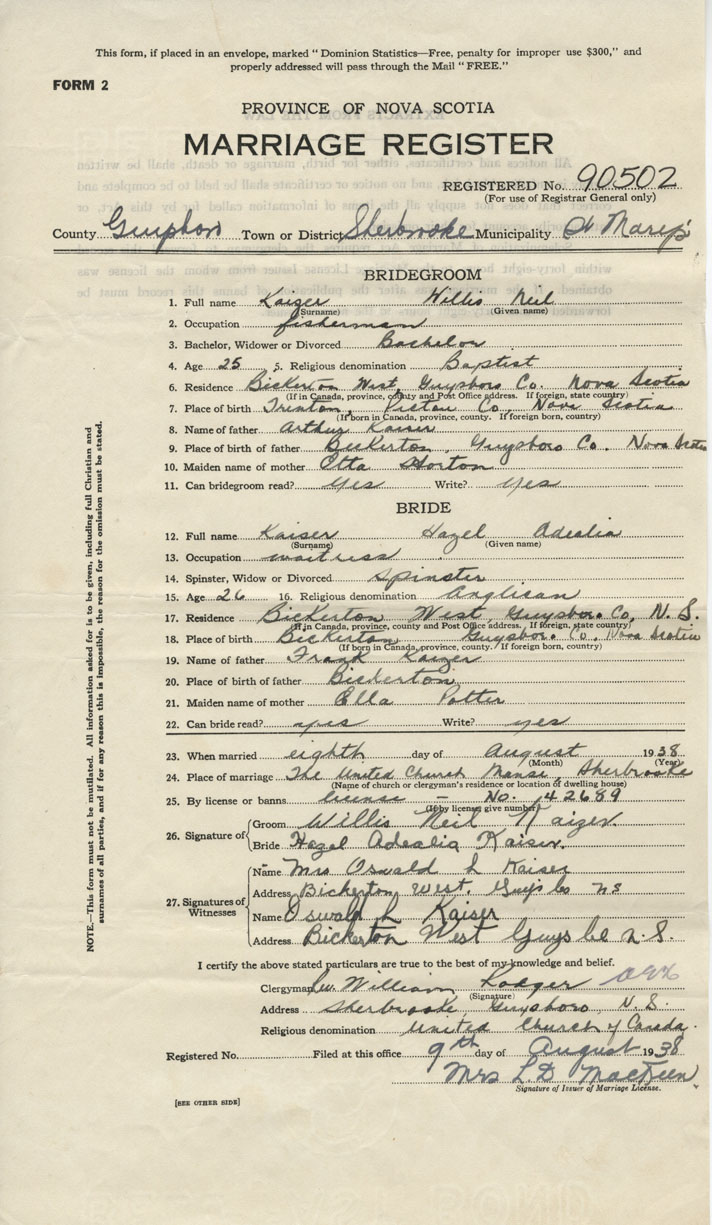 This form, if placed in an envelope, marked "Dominion Statistics—Free, penalty for improper use $300," and
properly addressed will pass through the Mail "FREE."
FORM 2
PROVINCE OF NOVA SCOTIA
MARRIAGE REGISTER
REGISTERED No. 90502
(For use of Registrar General only)
County Guysboro Town or District Sherbrooke Municipality St Marys
BRIDEGROOM
1. Full name Kaizer Willis Neil
(Surname) (Given name)
2. Occupation fisherman
3. Bachelor, Widower or Divorced Bachelor
4. Age 25 5. Religious denomination Baptist
6. Residence Bickerton West, Guysboro Co. Nova Scotia
(If in Canada, province, county and Post Office address. If foreign, state country)
7. Place of birth Trenton, Pictou Co, Nova Scotia
(If born in Canada, province, county. If foreign born, country)
8. Name of father Arthur Kaiser
9. Place of birth of father Bickerton, Guysboro Co. Nova Scotia
10. Maiden name of mother Etta Horton
11. Can bridegroom read? yes Write? yes
BRIDE
12. Full name Kaiser Hazel Adealia
(Surname) (Given name)
13. Occupation waitress
14. Spinster, Widow or Divorced Spinster
15. Age 26 16. Religious denomination Anglican
17. Residence Bickerton West, Guysboro Co, N. S.
(If in Canada, province, county and Post Office address. If foreign, state country)
18. Place of birth Bickerton Guysboro Co. Nova Scotia
(If born in Canada, province, county. If foreign born, country)
19. Name of father Frank Kaizer
20. Place of birth of father Bickerton
21. Maiden name of mother Ella Potter
22. Can bride read? yes Write? yes
23. When married eighth day of August 1938
(Month) (Year)
24. Place of marriage The United Church Manse, Sherbrooke
(Name of church or clergyman's residence or location of dwelling house)
25. By license or banns license - No. 42689
(If by license give number)
26. Signature of
Groom Willis Neil Kaizer
Bride Hazel Adealia Kaiser.
27. Signatures of Witnesses
Name Mrs Oswald L Kaiser
Address Bickerton West. Guys bo ns
Name Oswald L Kaiser
Address Bickerton West Guys bo n.S.
I certify the above stated particulars are true to the best of my knowledge and belief.
Clergyman William Rodger
(Signature)
Address Sherbrooke, Guysboro, N. S.
Religious denomination United Church of Canada.
Registered No. Filed at this office 9th day of August 1938
Mrs L.D. MacKeen
Signature of Issuer of Marriage License.
[SEE OTHER SIDE]
NOTE.—This form must not be mutilated. All information asked for is to be given, including full Christian and
surnames of all parties, and if for any reason this is impossible, the reason for the omission must be stated.